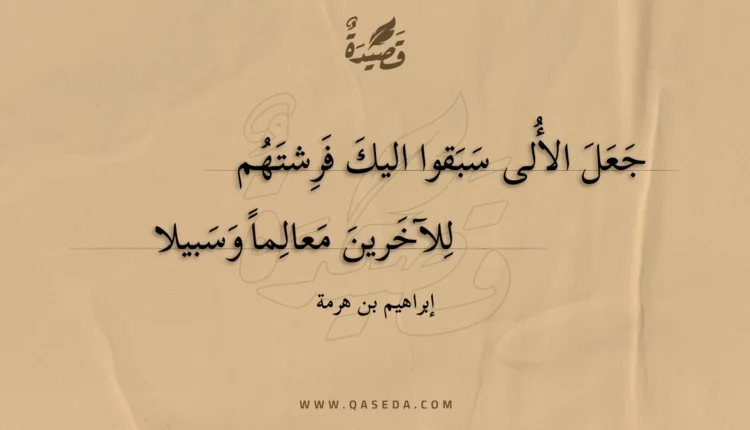 قَصِيْدَةٌ
جَعَلَ الأُلى سَبَقوا اليكَ فَرِشتَهُم
لِلآخَرينَ مَعالِماً وَسَبيلا
إبراهيم بن هرمة
WWW.QASEDA.COM